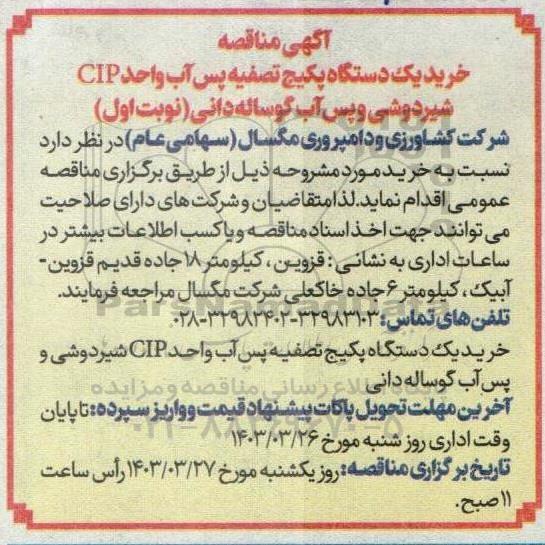 آگهی مناقصه
خرید یک دستگاه پکیج تصفیه پس آب واحد CIP
شیردوشی و پس آب گوساله دانی (نوبت اول)
شرکت کشاورزی و دامپروری مگسال (سهامی عام) در نظر دارد
نسبت به خرید مورد مشروحه ذیل از طریق برگزاری مناقصه
عمومی اقدام نماید. لذا متقاضیان و شرکت های دارای صلاحیت
می توانند جهت اخذ اسناد مناقصه و یا کسب اطلاعات بیشتر در
ساعات اداری به نشانی : قزوین ، کیلومتر ۱۸ جاده قدیم قزوین-
آبیک ، کیلومتر ۶ جاده خاکعلی شرکت مگسال مراجعه فرمایند.
تلفن های تماس: ۳۲۹۸۳۱۰۳-۳۲۹۸۲۴۰۲-۰۲۸
خرید یک دستگاه پکیج تصفیه پس آب واحد CIP شیردوشی و
پس آب گوساله دانی
آخرین مهلت تحویل پاکات پیشنهاد قیمت و واریز سپرده: تا پایان
وقت اداری روز شنبه مورخ ۱۴۰۳/۰۳/۲۶
تاریخ برگزاری مناقصه: روز یکشنبه مورخ ۱۴۰۳/۰۳/۲۷ رأس ساعت
۱۱ صبح.